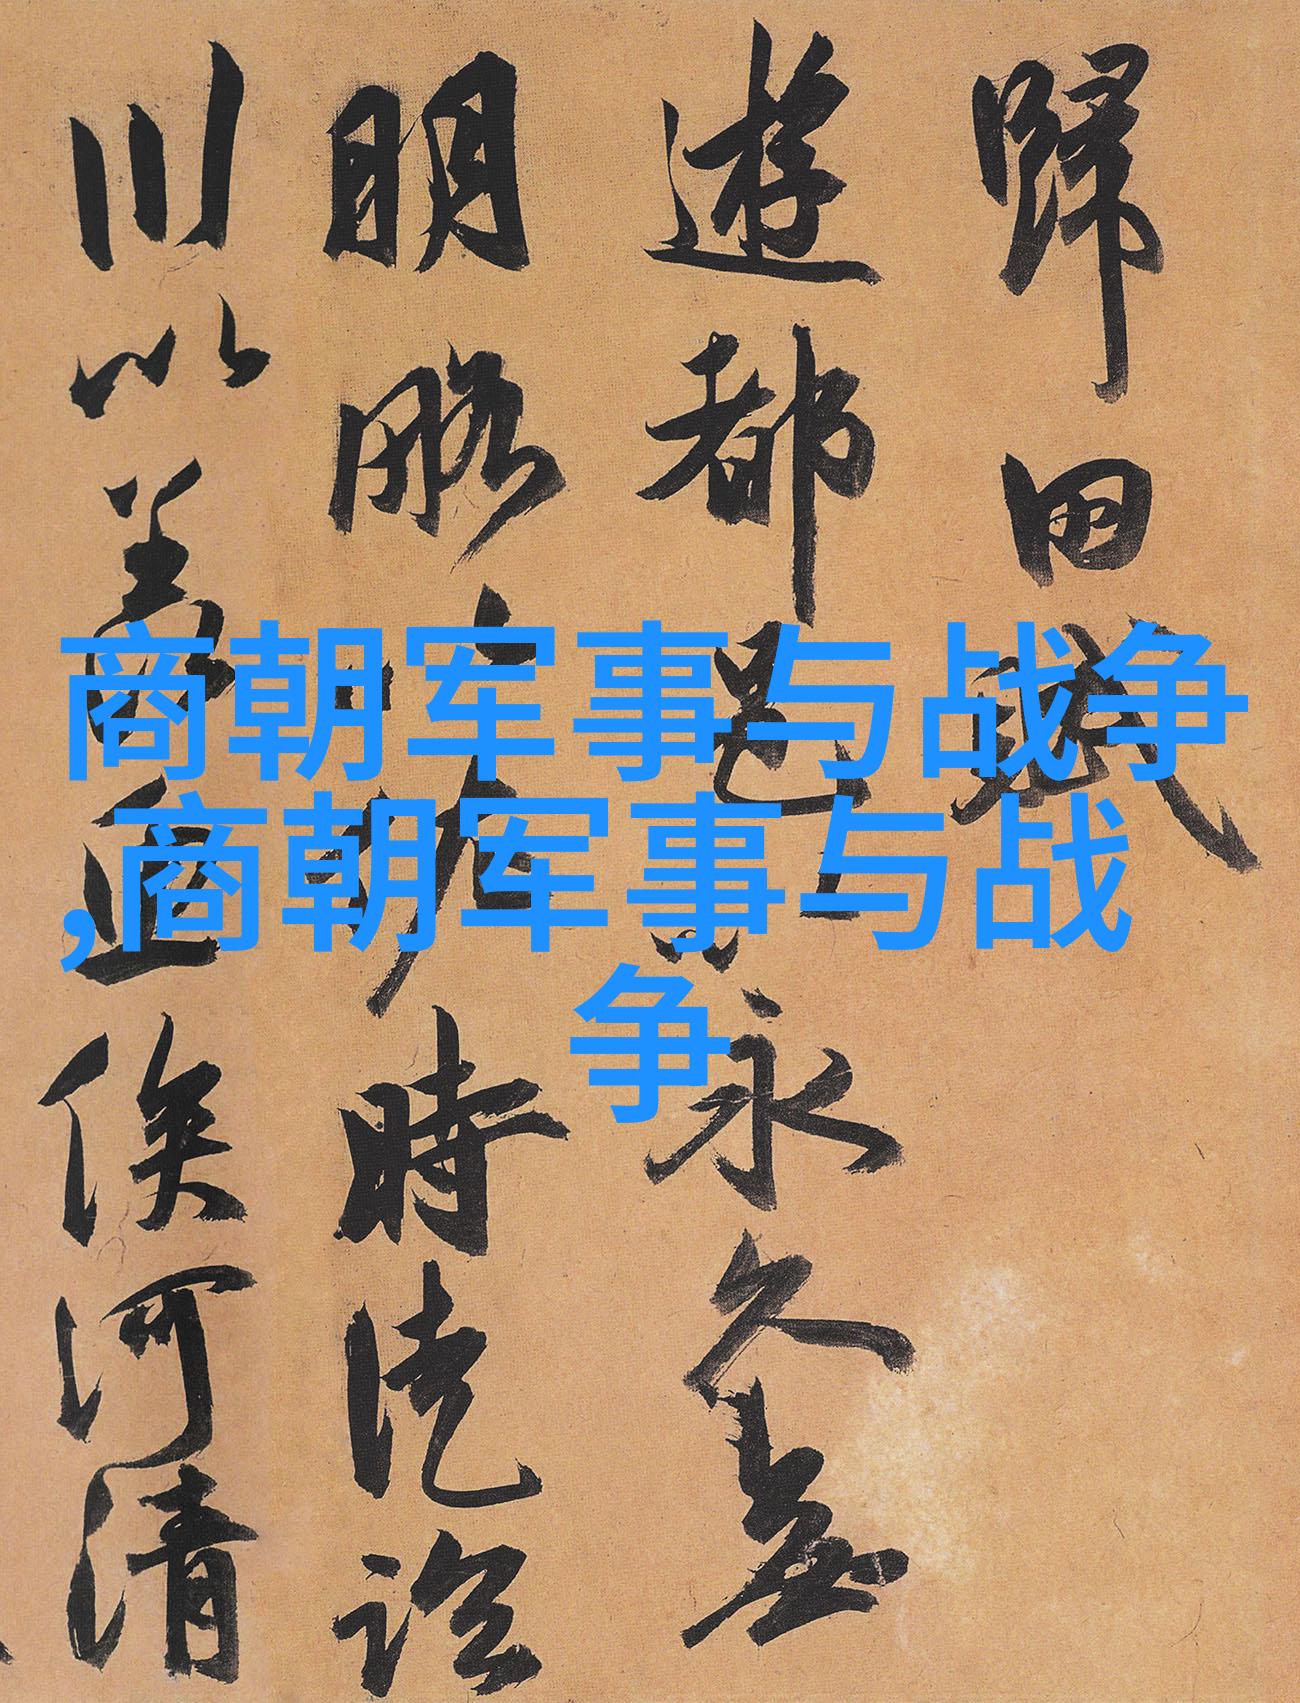 商朝军事与战争
,商朝军事与战
争
歸田賦
遊都邑以永久無
明略以佐時徒臨
川以羡魚俟河清